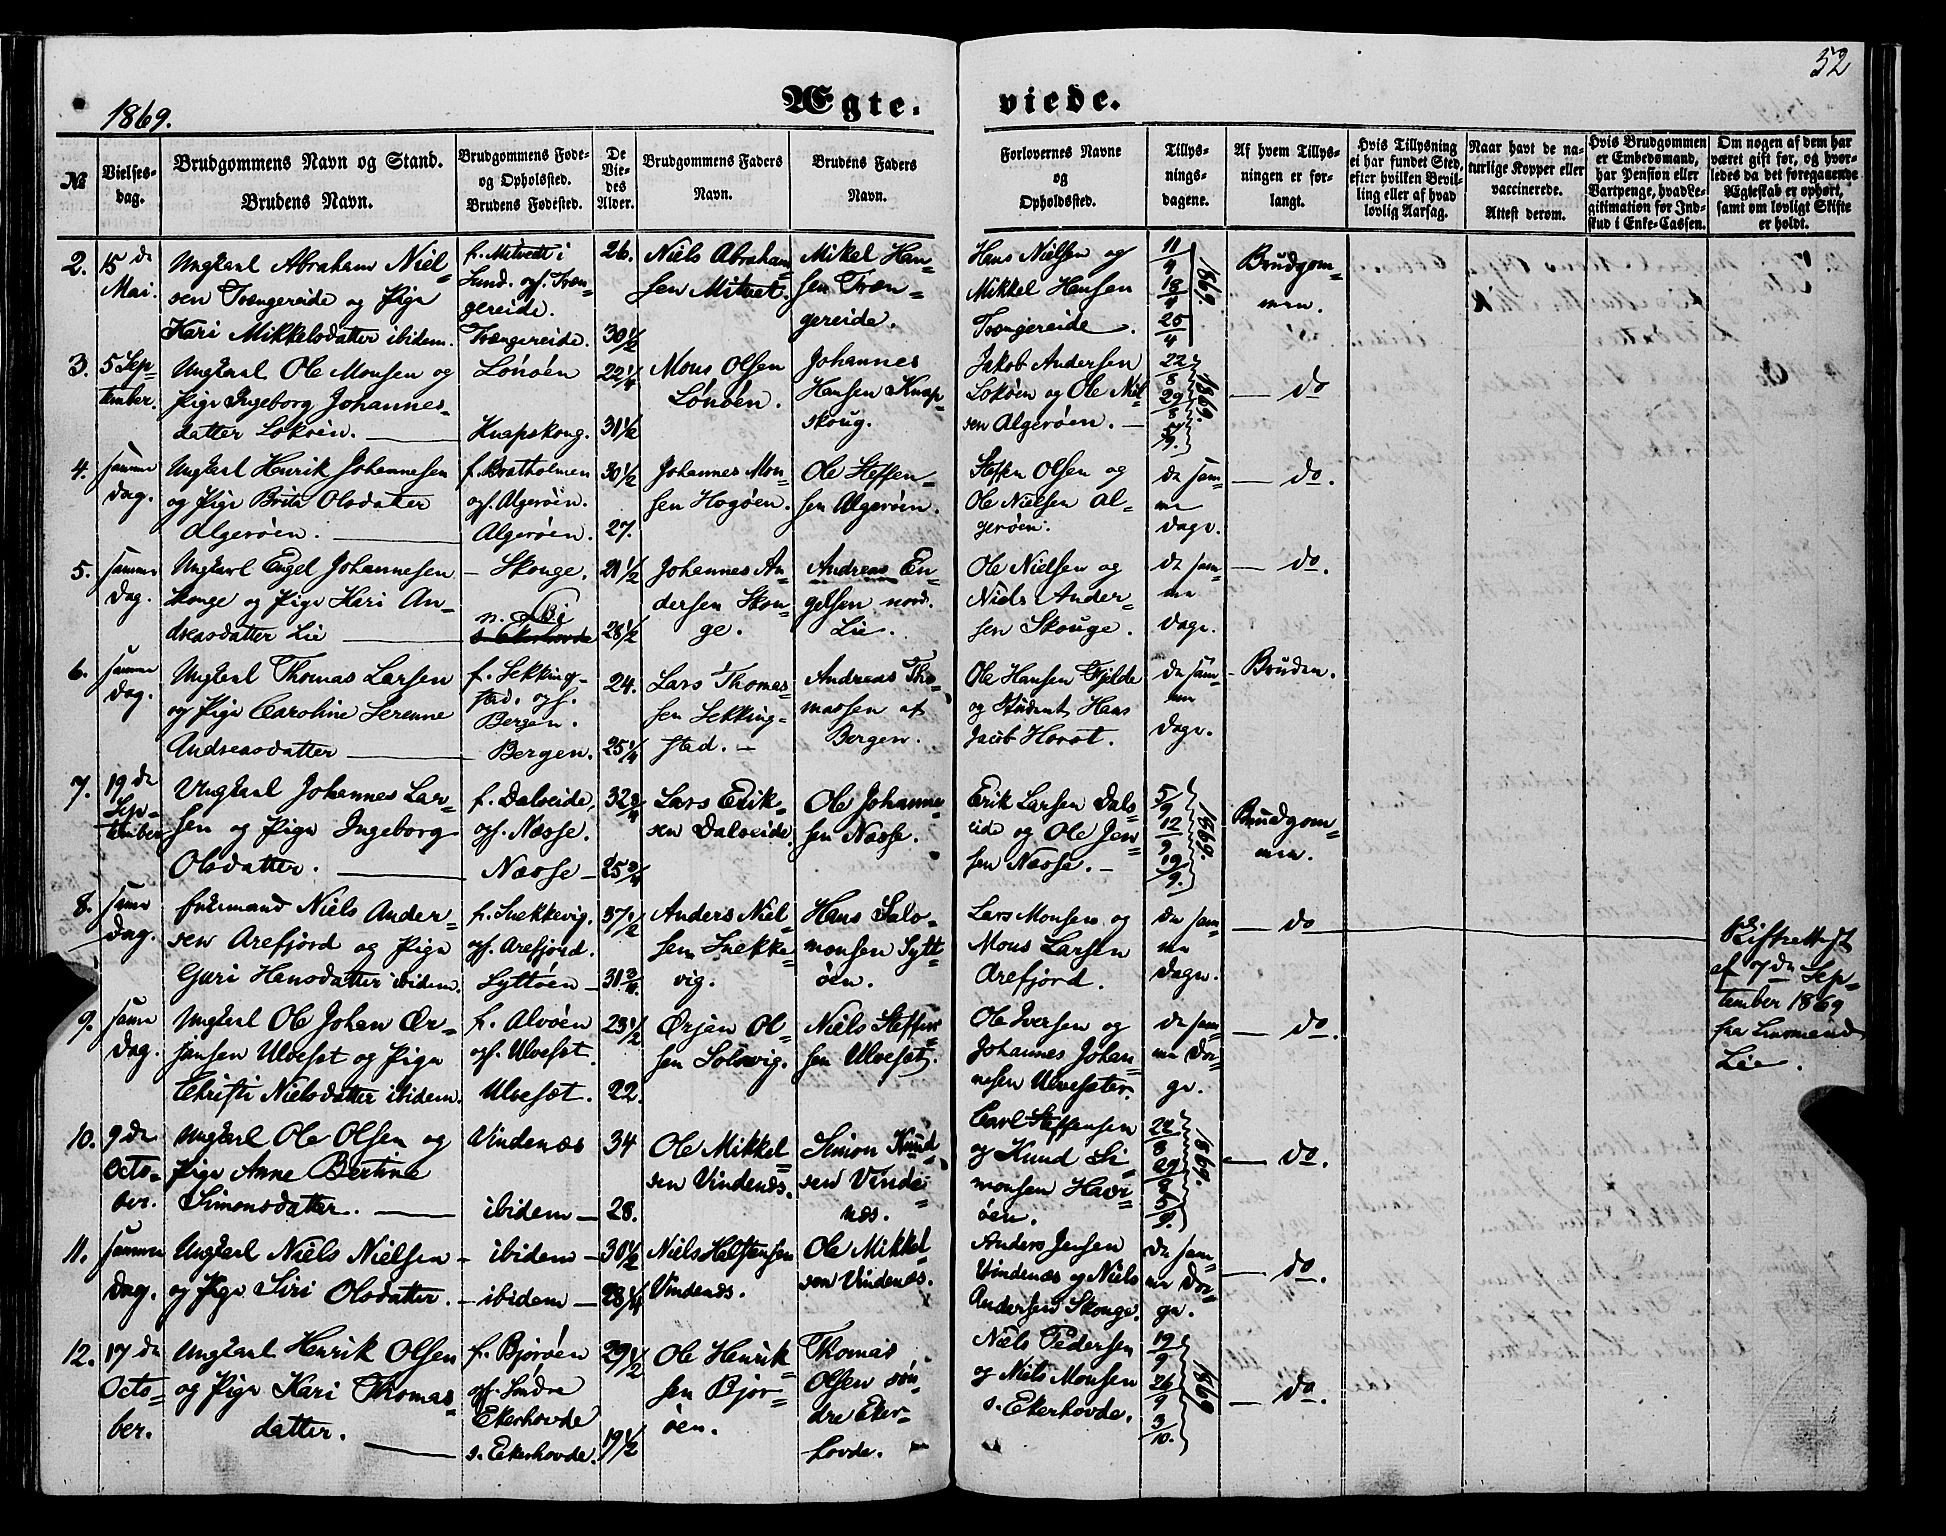 52
1869.
Ægte-
viede.
№
Vielses-
dag.
Brudgommens Navn og Stand.
Brudens Navn.
Brudgommens Føde-
og Opholssted.
Brudens Fødested.
De
Vie-
des
Alder.
Brudgommens Faders
Navn.
Brudens Faders
Navn.
Forlovernes Navne
og
Opholdssted.
Tillys-
nings-
dagene.
Af hvem Tillys-
ningen er for-
langt.
Hvis Tillysning
ei har fundet Sted,
efter hvilken Bevil-
ling eller af hvad
lovlig Aarsag.
Naar havt de na-
turlige Kopper eller
vaccinerede.
Attest derom.
Hvis Brudgommen
er Embedsmand,
har Pension eller
Vartpenge, hvad Le-
gitimation for Ind-
skud i Enke-Cassen.
Om nogen af dem har
været gift før, og hvor-
ledes da det foregaaende
Ægteskab er ophørt,
samt om lovligt Skifte
er holdt.
2.
15 de
Mai.
Ungkarl Abraham Niel-
sen Trængereide og Pige
Kari Mikkelsdatter ibidem.
f. Mitvedt i
Sund. opf. Træn-
gereide.
Trængereide.
26.
30 1/2
Niels Abraham-
sen Mitvet.
Mikel Han-
sen Træn-
gereide.
Hans Nielsen og
Mikkel Hansen
Trængereide.
11/4
18/4
25/4
1869.
Brudgom-
men.
3.
5 Sep-
tember.
Ungkarl Ole Monsen og
Pige Ingeborg Johannes-
datter Lokøen.
Lönöen
Knapskoug.
22 1/4
31 1/2
Mons Olsen
Lönöen.
Johannes
Hansen Knap-
skoug.
Jakob Andersen
Lokøen og Ole Niel-
sen Algerøen.
22/8
29/8
5/9.
1869.
do
4.
samme
Dag.
Ungkarl Henrik Johannesen
og Pige Brita Olsdatter
Algerøen.
f. Bratholmen
opf. Algerøen.
Algerøen.
30 1/2
27.
Johannes Mon-
sen Hogøen.
Ole Steffen-
sen Algerøen.
Steffen Olsen og
Ole Nielsen Al-
gerøen.
de sam-
me
Dage.
do.
5.
samme
Dag.
Ungkarl Engel Johannesen
Skouge og Pige Kari An-
dreasdatter Lie
Skouge.
n. Lie
s. Ekerhovde
21 1/2
28 1/2
Johannes An-
dersen Skou-
ge.
Andreas En-
gelsen nord.
Lie.
Ole Nielsen og
Niels Ander-
sen Skouge.
de sam-
me
Dage.
do.
6.
samme
Dag.
Ungkarl Thomas Larsen
og Pige Caroline Serenne
Andreasdatter
f. Sekking-
stad. opf.
Bergen.
Bergen.
24.
25 1/4
Lars Thomas-
sen Sekking-
stad.
Andreas Tho-
massen af
Bergen.
Ole Hansen Fjelde
og Student Hans
Jacob Horst.
de sam-
me
Dage.
Bruden.
7.
19 de
Sep-
tember
Ungkarl Johannes Lar-
sen og Pige Ingeborg
Olsdatter.
f. Dalseide,
opf. Næsse.
Næsse
32 3/4
25 3/4
Lars Erik-
sen Dalseide.
Ole Johanne-
sen Næsse.
Erik Larsen Dals-
eide og Ole Jen-
sen Næsse.
5/9
12/9
19/9.
1869.
Brudgom-
men.
8.
samme
Dag.
Enkemand Niels Ander-
sen Arefjord og Pige
Guri Hansdatter ibidem.
f. Snekkevig.
opf. Arefjord.
Lyttöen
37 1/2
31 3/4.
Anders Niel-
sen Snekke-
vig.
Hans Salo-
monsen Lytt-
öen.
Lars Monsen og
Mons Larsen
Arefjord.
de sam-
me
Dage.
do
Skifteattest
af 7de Sep-
tember 1869
fra Lensmand
Lie.
9.
samme
Dag.
Ungkarl Ole Johan Ør-
jansen Ulveset og Pige
Christi Nielsdatter ibidem.
f. Alvøen
opf. Ulveset.
Ulvesæt.
23 1/2
22.
Ørjan Ol-
sen Solsvig.
Niels Steffen-
sen Ulveset.
Ole Iversen og
Johannes Johan-
nesen Ulveseter.
de sam-
me Da-
ge.
do.
10.
9 de
Octo-
ber.
Ungkarl Ole Olsen og
Pige Anne Bertine
Simonsdatter.
Vindenæs
ibidem
34
28.
Ole Mikkel-
sen Vindenæs.
Simon Knud-
sen Vinde-
næs.
Carl Steffensen
og Knud Si-
monsen Havi-
öen.
22/8
29/8
5/9.
1869.
do.
11.
samme
Dag.
Ungkarl Niels Nielsen
og Pige Siri Olsdatter.
ibidem
ibidem
30 1/2
28 1/4
Niels Halstensen
Vindenæs.
Ole Mikkel-
sen Vindenæs.
Anders Jensen
Vindenæs og Niels
Andersen Skouge.
de sam-
me Da-
ge.
do.
12.
17 de
Octo-
ber.
Ungkarl Henrik Olsen
og Pige Kari Thomas-
datter.
f. Bjorøen
opf. Søndre
Ekerhovde
s. Ekerhovde.
29 1/2
19 1/2
Ole Henrik-
sen Bjor-
øen.
Thomas
Olsen søn-
dre Eker-
hovde.
Niels Pedersen
og Niels Monsen
s. Ekerhovde.
19/9
26/9
3/10.
1869
do.